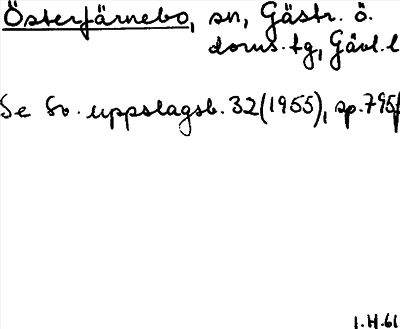 Österfärnebo, sn, Gästr. ö.
doms. tg, Gävl. l
Se Sv. uppslagsb. 32 (1955), sp. 795f
1.H.61